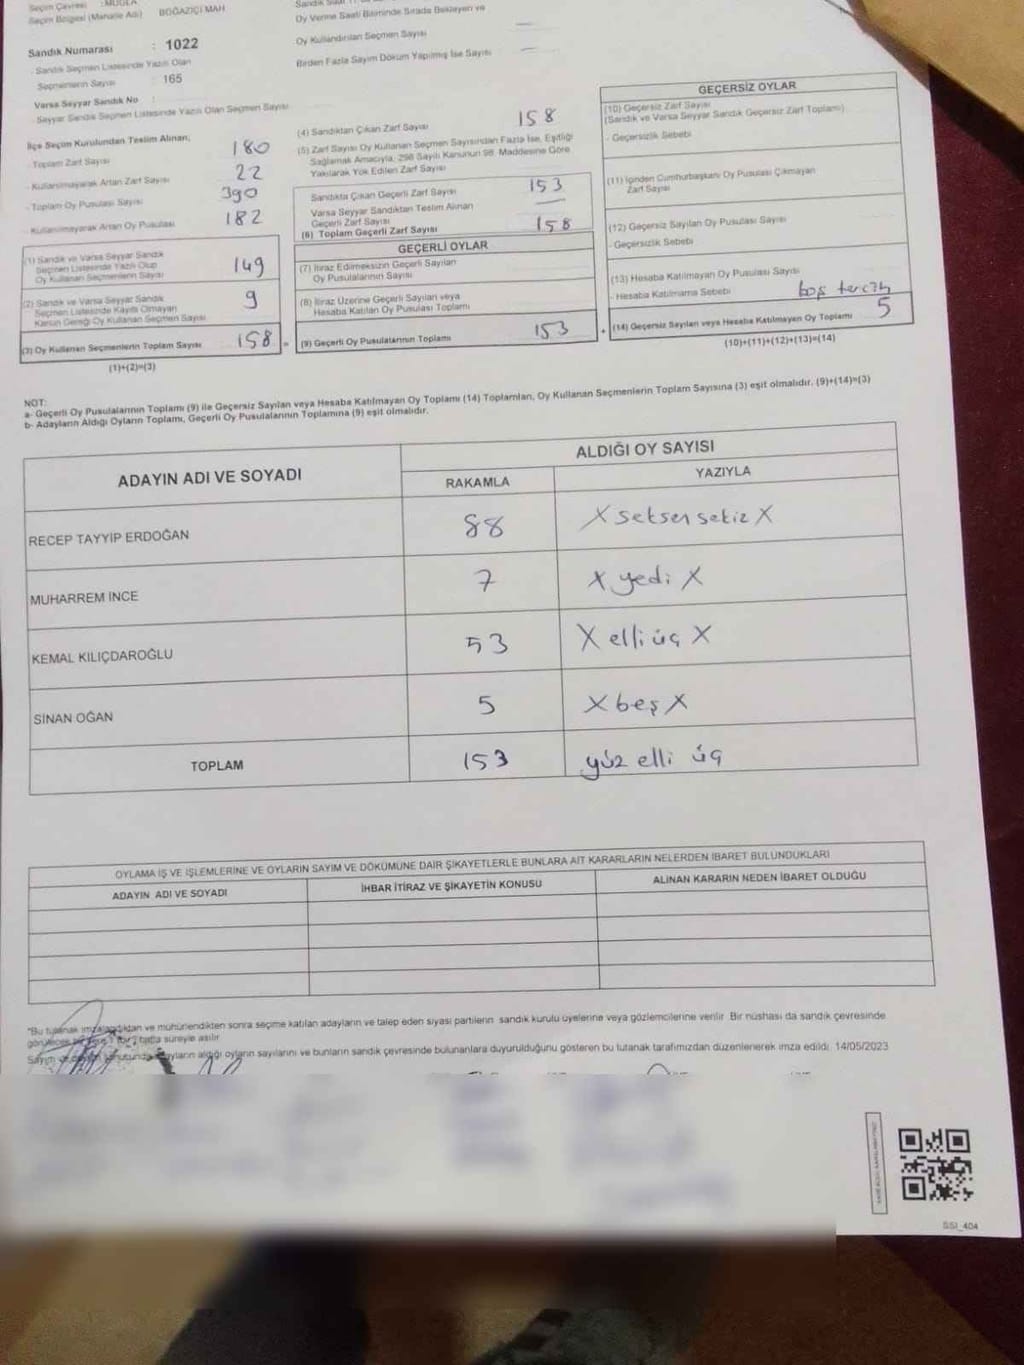 Seçim Çevresi : MUĞLA
Seçim Bölgesi (Mahalle Adı) BOĞAZİÇİ MAH
Sandık Numarası : 1022
- Sandık Seçmen Listesinde Yazılı Olan
Seçmenlerin Sayısı : 165
Varsa Seyyar Sandık No :
- Seyyar Sandık Seçmen Listesinde Yazılı Olan Seçmen Sayısı
İlçe Seçim Kurulundan Teslim Alınan;
- Toplam Zarf Sayısı 180
- Kullanılmayarak Artan Zarf Sayısı 22
- Toplam Oy Pusulası Sayısı 390
- Kullanılmayarak Artan Oy Pusulası 182
(1) Sandık ve Varsa Seyyar Sandık
Seçmen Listesinde Yazılı Olup
Oy Kullanan Seçmenlerin Sayısı 149
(2) Sandık ve Varsa Seyyar Sandık
Seçmen Listesinde Kayıtlı Olmayan
Kanun Gereği Oy Kullanan Seçmen Sayısı 9
(3) Oy Kullanan Seçmenlerin Toplam Sayısı 158 =
(1)+(2)=(3)
Oy Verme Saati Bitiminde Sırada Bekleyen ve
Oy Kullandırılan Seçmen Sayısı —
Birden Fazla Sayım Döküm Yapılmış İse Sayısı —
(4) Sandıktan Çıkan Zarf Sayısı 158
(5) Zarf Sayısı Oy Kullanan Seçmen Sayısından Fazla İse, Eşitliği
Sağlamak Amacıyla, 298 Sayılı Kanunun 98. Maddesine Göre
Yakılarak Yok Edilen Zarf Sayısı
Sandıkta Çıkan Geçerli Zarf Sayısı 153
Varsa Seyyar Sandıktan Teslim Alınan
Geçerli Zarf Sayısı —
(6) Toplam Geçerli Zarf Sayısı 158
GEÇERLİ OYLAR
(7) İtiraz Edilmeksizin Geçerli Sayılan
Oy Pusulalarının Sayısı
(8) İtiraz Üzerine Geçerli Sayılan veya
Hesaba Katılan Oy Pusulası Toplamı
(9) Geçerli Oy Pusulalarının Toplamı 153 +
GEÇERSİZ OYLAR
(10) Geçersiz Zarf Sayısı
(Sandık ve Varsa Seyyar Sandık Geçersiz Zarf Toplamı)
- Geçersizlik Sebebi
(11) İçinden Cumhurbaşkanı Oy Pusulası Çıkmayan
Zarf Sayısı
(12) Geçersiz Sayılan Oy Pusulası Sayısı
- Geçersizlik Sebebi
(13) Hesaba Katılmayan Oy Pusulası Sayısı
- Hesaba Katılmama Sebebi boş tercih
(14) Geçersiz Sayılan veya Hesaba Katılmayan Oy Toplamı 5
(10)+(11)+(12)+(13)=(14)
NOT:
a- Geçerli Oy Pusulalarının Toplamı (9) ile Geçersiz Sayılan veya Hesaba Katılmayan Oy Toplamı (14) Toplamları, Oy Kullanan Seçmenlerin Toplam Sayısına (3) eşit olmalıdır. (9)+(14)=(3)
b- Adayların Aldığı Oyların Toplamı, Geçerli Oy Pusulalarının Toplamına (9) eşit olmalıdır.
ADAYIN ADI VE SOYADI ALDIĞI OY SAYISI
RAKAMLA YAZIYLA
RECEP TAYYİP ERDOĞAN 88 X seksen sekiz X
MUHARREM İNCE 7 X yedi X
KEMAL KILIÇDAROĞLU 53 X elli üç X
SİNAN OĞAN 5 X beş X
TOPLAM 153 yüz elli üç
OYLAMA İŞ VE İŞLEMLERİNE VE OYLARIN SAYIM VE DÖKÜMÜNE DAİR ŞİKAYETLERLE BUNLARA AİT KARARLARIN NELERDEN İBARET BULUNDUKLARI
ADAYIN ADI VE SOYADI İHBAR İTİRAZ VE ŞİKAYETİN KONUSU ALINAN KARARIN NEDEN İBARET OLDUĞU
*Bu tutanak imzalandıktan ve mühürlendikten sonra seçime katılan adayların ve talep eden siyasi partilerin sandık kurulu üyelerine veya gözlemcilerine verilir. Bir nüshası da sandık çevresinde
hafta süreyle asılır.
adayların aldığı oyların sayılarını ve bunların sandık çevresinde bulunanlara duyurulduğunu gösteren bu tutanak tarafımızdan düzenlenerek imza edildi. 14/05/2023
SSI_404